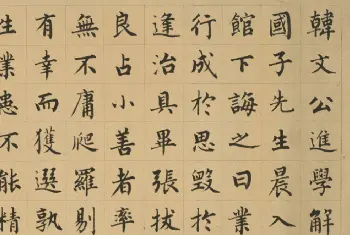 韓文公進學解
國子先生晨入
館下誨之曰業
行成於思毀於
逢治具畢張拔
良占小善者率
無不庸爬羅剔
有幸而獲選孰
生業患不能精